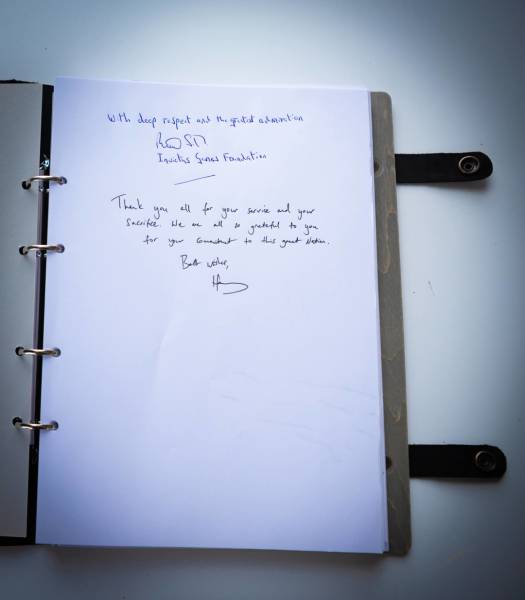 With deep respect and the greatest admiration
Invictus Games Foundation
Thank you all for your service and your
sacrifice. We are all so grateful to you
for your commitment to this great Nation.
Best wishes,